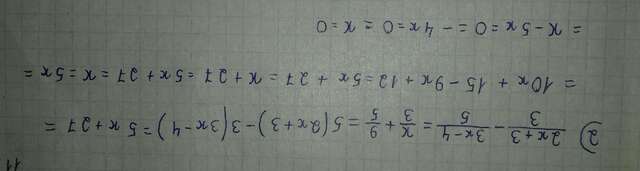 11
2) (2x+3)/3 - (3x-4)/5 = x/3 + 9/5 = 5(2x+3)-3(3x-4)=5x+27 =
= 10x + 15 - 9x + 12=5x + 27 = x + 27 = 5x + 27 = x = 5x =
= x-5x=0 = -4x=0 = x=0